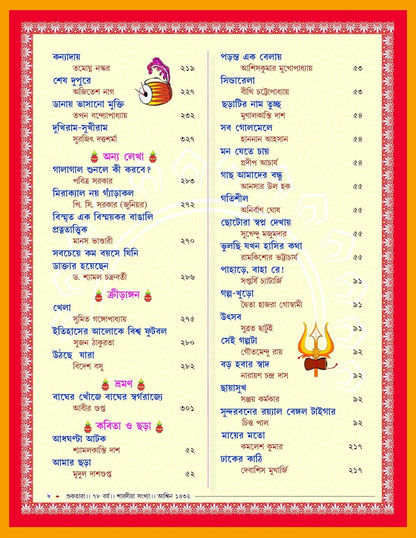 কন্যাদায়
তমোঘ্ন নস্কর ২১৯
শেষ দুপুরে
অজিতেশ নাগ ২২৭
ডানায় ভাসানো মুক্তি
তপন বন্দ্যোপাধ্যায় ২৩২
দুখিরাম-সুখীরাম
সুরজিৎ দত্তশর্মা ৩২৭
অন্য লেখা
গালাগাল শুনলে কী করবে?
পবিত্র সরকার ২৬৩
মিরাক্যাল নয় গ্যাঁড়াকল
পি. সি. সরকার (জুনিয়র) ২৭২
বিস্মৃত এক বিস্ময়কর বাঙালি
প্রত্নতাত্ত্বিক
মানস ভাণ্ডারী ২৭০
সবচেয়ে কম বয়সে যিনি
ডাক্তার হয়েছেন
ড. শ্যামল চক্রবর্তী ২৮৬
ক্রীড়াঙ্গন
খেলা
সুমিত গঙ্গোপাধ্যায় ২৭৫
ইতিহাসের আলোকে বিশ্ব ফুটবল
সুজন ঠাকুরতা ২৮০
উঠছে যারা
বিদেশ বসু ২৮২
ভ্রমণ
বাঘের খোঁজে বাঘের স্বর্গরাজ্যে
আবীর গুপ্ত ৩০১
কবিতা ও ছড়া
আধঘণ্টা আটক
শ্যামলকান্তি দাশ ৫২
আমার ছড়া
মৃদুল দাশগুপ্ত ৫২
পড়ন্ত এক বেলায়
আশিসকুমার মুখোপাধ্যায় ৫৩
সিন্ডারেলা
বীথি চট্টোপাধ্যায় ৫৩
ছড়াটির নাম তুচ্ছ
মৃণালকান্তি দাশ ৫৪
সব গোলমেলে
হাননান আহসান ৫৪
মন যেতে চায়
প্রদীপ আচার্য ৫৪
গাছ আমাদের বন্ধু
আনসার উল হক ৫৫
গতিশীল
অনির্বাণ ঘোষ ৫৫
ছোটোরা স্বপ্ন দেখায়
সুখেন্দু মজুমদার ৫৫
ভুলছি যখন হাসির কথা
রামকিশোর ভট্টাচার্য ৫৫
পাহাড়ে, বাহা রে!
সপ্তর্ষি চ্যাটার্জি ৯১
গল্প-খুড়ো
দ্বৈতা হাজরা গোস্বামী ৯১
উৎসব
সুব্রত ছাটুই ৯১
সেই গল্পটা
গৌতমেন্দু রায় ৯২
বড় হবার স্বাদ
নারায়ণ চন্দ্র দাস ৯২
ছায়াসুখ
সঞ্জয় কর্মকার ৯২
সুন্দরবনের রয়্যাল বেঙ্গল টাইগার
চিত্ত পাল ৯২
মায়ের মতো
কমলেশ কুমার ২১৭
ঢাকের কাঠি
দেবাশিস মুখার্জি ২১৭
৮ ● শুকতারা।। ৭৮ বর্ষ।। শারদীয়া সংখ্যা।। আশ্বিন ১৪৩২